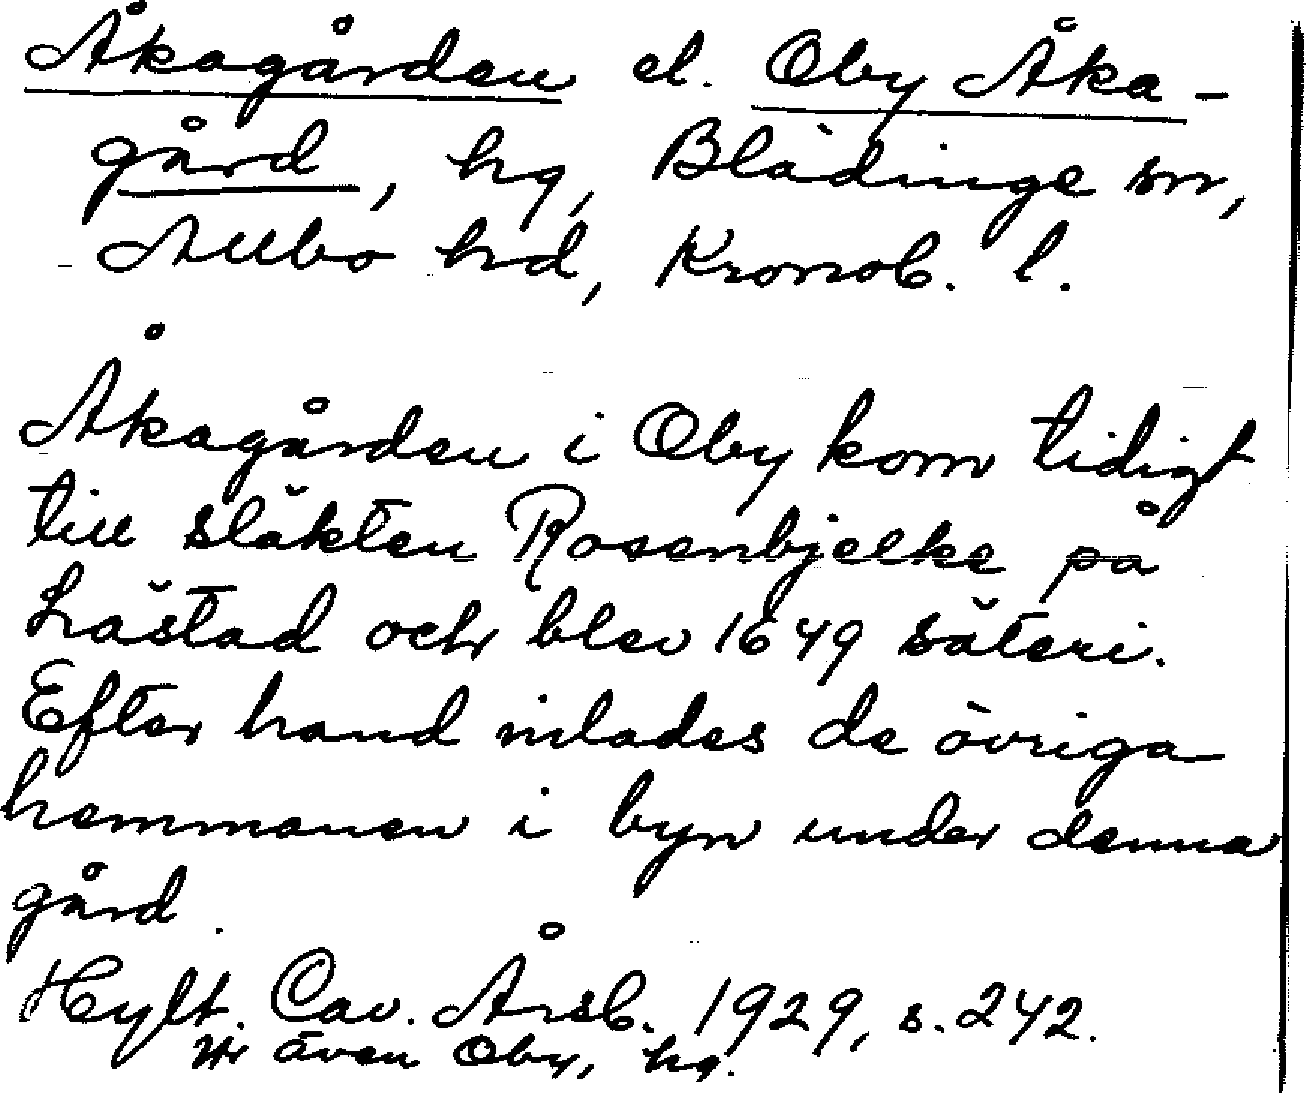 Åkagården el. Oby Åka-
gård, hg, Blädinge sn,
Allbo hd, Kronob. l.
Åkagården i Oby kom tidigt
till släkten Rosenbjelke på
Låstad och blev 1649 säteri.
Efter hand inlades de övriga
hemmanen i byn under denna
gård.
Hylt. Cav. Årsb. 1929, s. 242.
även Oby, hg.